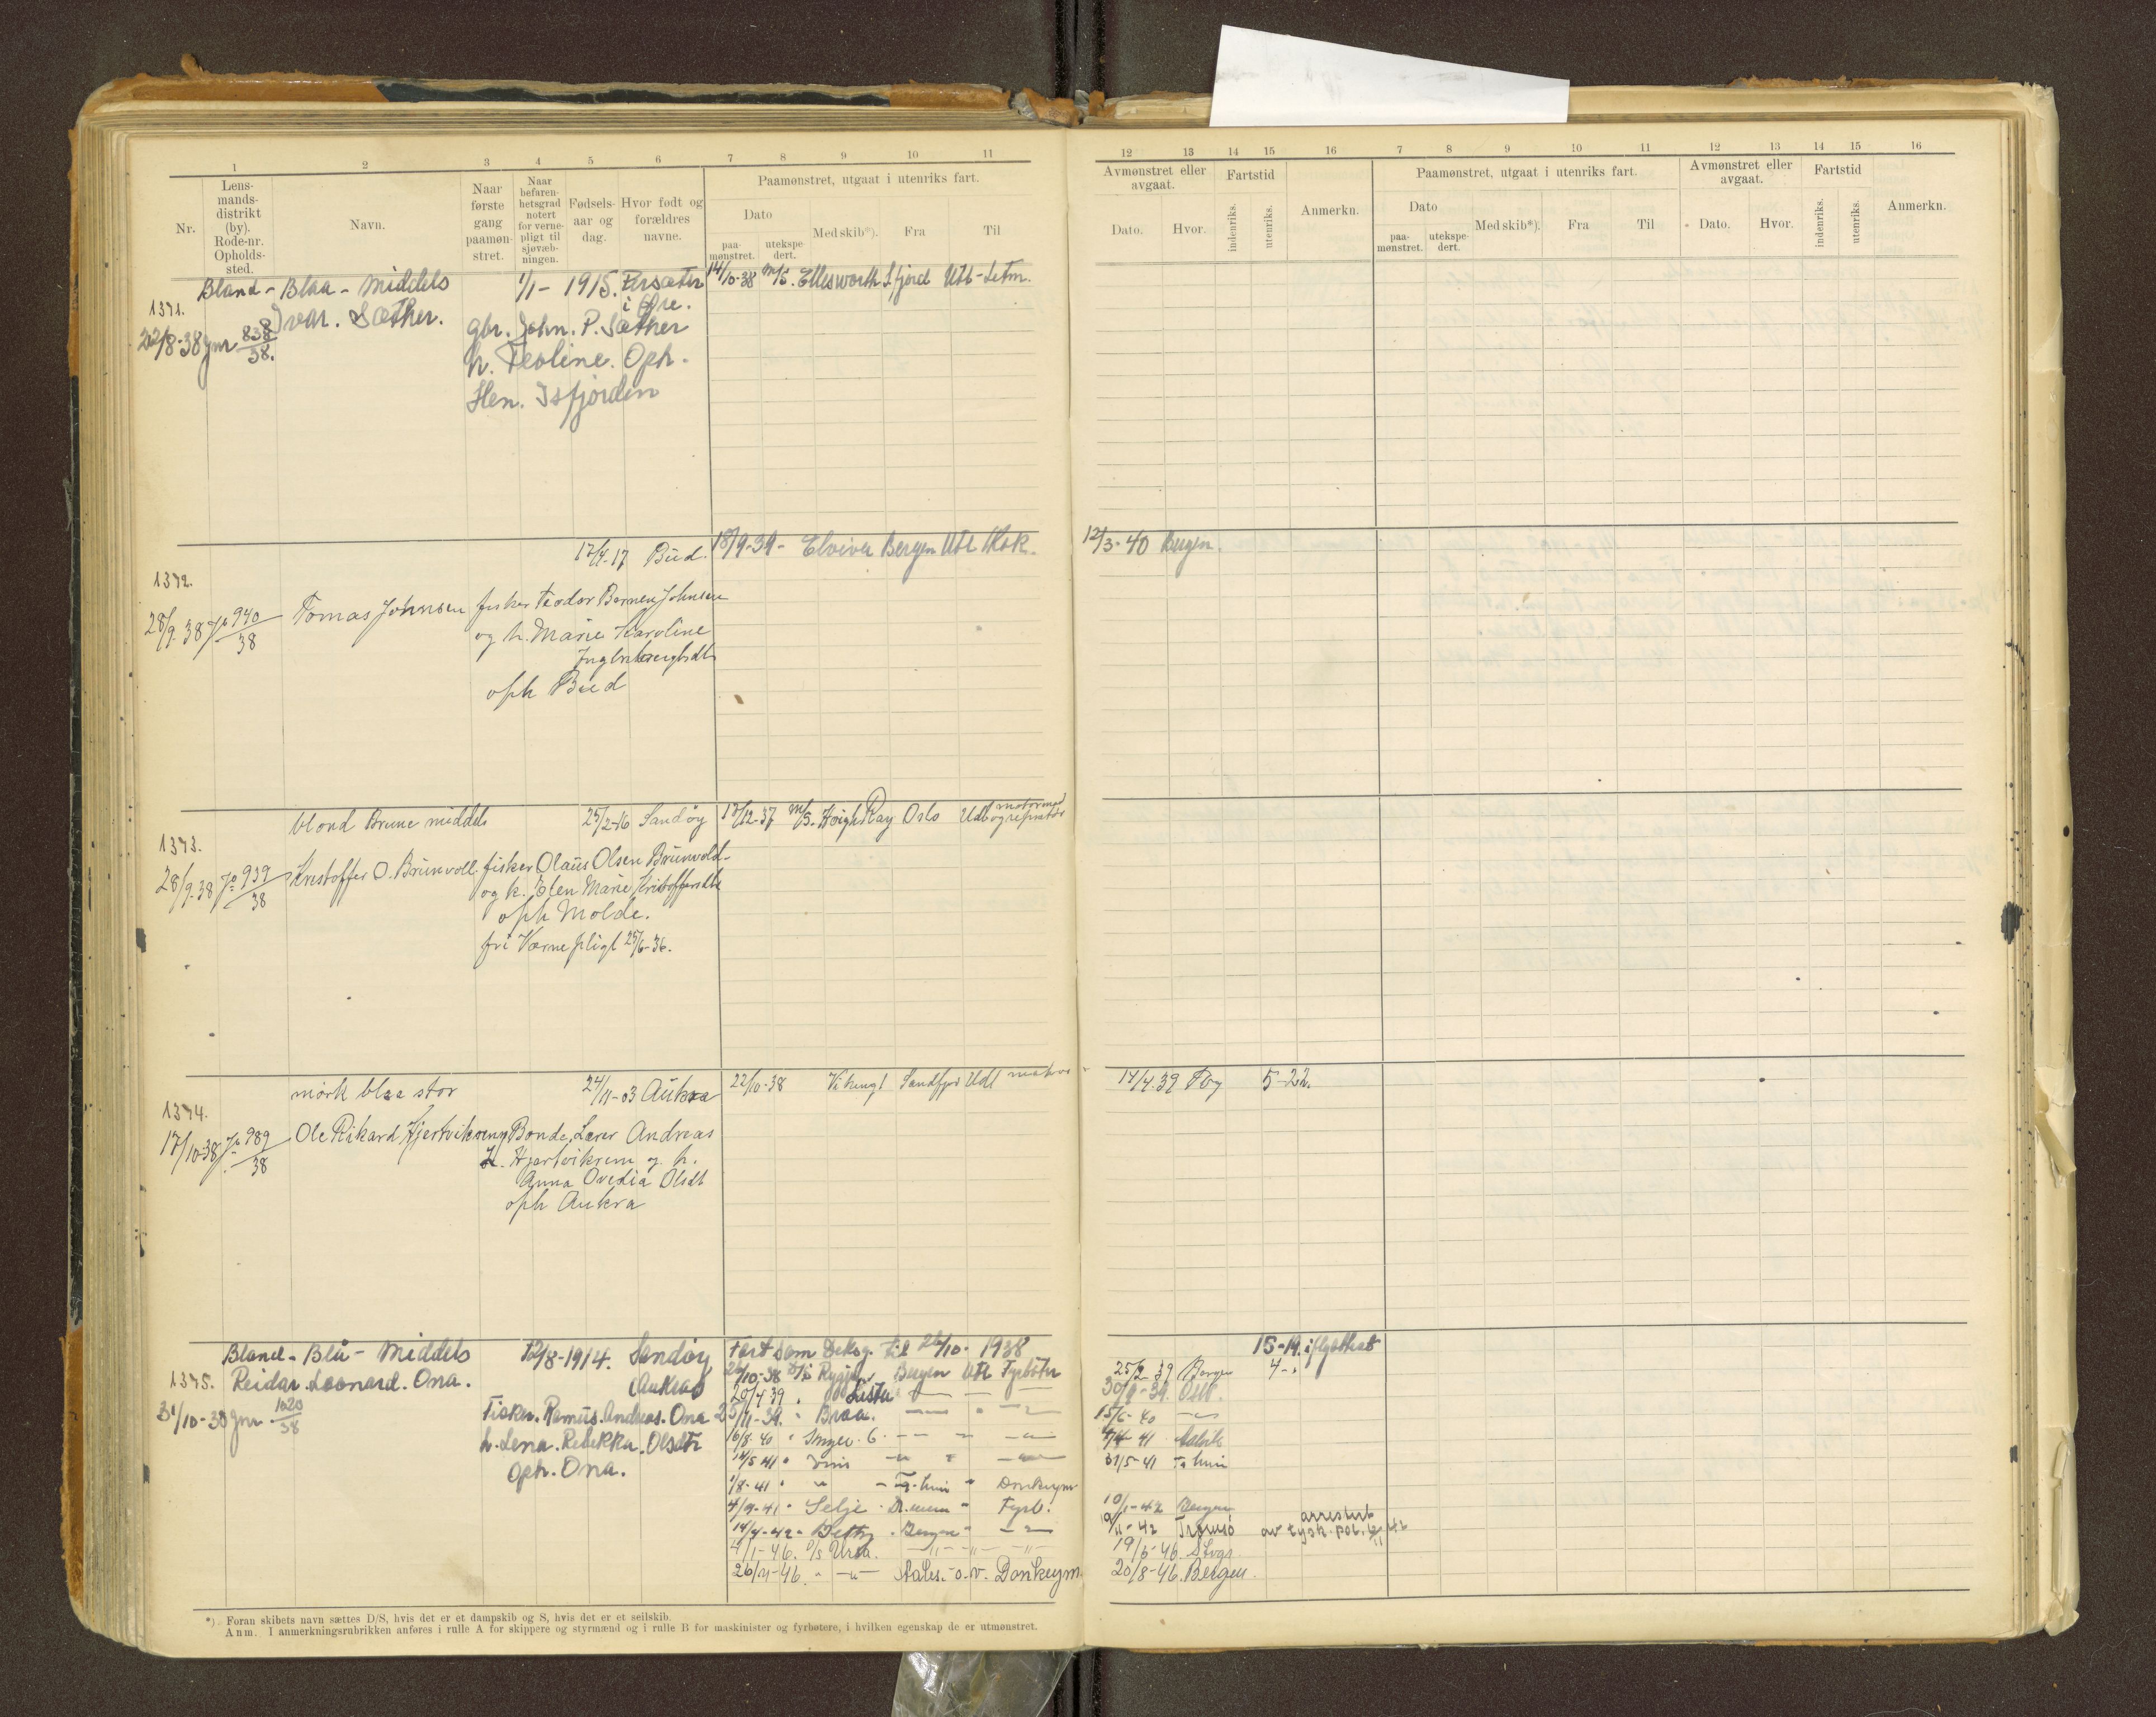 1 2 3 4 5 6 7 8 9 10 11
Nr.
Lens-
mands-
distrikt
(by).
Rode-nr.
Opholds-
sted.
Navn.
Naar
første
gang
paamøn-
stret.
Naar
befaren-
hetsgrad
notert
for verne-
pligt til
sjøvæb-
ningen.
Fødsels-
aar og
dag.
Hvor født og
forældres
navne.
Paamønstret, utgaat i utenriks fart.
Dato
paa-
mønstret.
utekspe-
dert.
Med skib*).
Fra
Til
12 13 14 15 16 7 8 9 10 11 12 13 14 15 16
Avmønstret eller
avgaat.
Dato.
Hvor.
Fartstid
indenriks.
utenriks.
Anmerkn.
Paamønstret, utgaat i utenriks fart.
Dato
paa-
mønstret.
utekspe-
dert.
Med skib*).
Fra
Til
Avmønstret eller
avgaat.
Dato.
Hvor.
Fartstid
indenriks.
utenriks.
Anmerkn.
Bland - Blaa - Middels 1/1 - 1915. 14/10-38 M/S. Ellesworth S.fjord Utl - Letm.
1371. Ivar. Sæther. i Øre.
22/8-38 Jnr 838/38. gbr. John. P. Sæther
h. Teoline. Oph.
Hen. Isfjorden
17/4-17 Bud. 18/9-39 - Elvira Bergen Utl Kok. 12/3-40 Bergen.
1372.
28/9-38 940/38 Tomas Johnsen fisker Teodor Johnsen
og h. Marie Karoline
oph Bud
blond Brune middels 25/2-16 Sandøy 17/12-37 M/S. Høigh Ray Oslo Udl
1373.
28/9-38 939/38 Kristoffer O. Brunvoll. fisker Olaus Olsen Brunvold
og h. Elen Marie Kristoffersdtr
oph Molde.
fri Værnepligt 25/6-36.
mørk blaa stor 24/11-03 Aukra 22/10-38 Sandfjord Udl 17/4-39 5-22.
1374.
17/10-38 989/38 Ole Rikard Hjertvikrem Bonde, Lærer Andreas
Hjertvikrem og h.
Anna Ovedia Olsdt
oph Aukra
Bland - Blå - Middels 12/8-1914. Sandøy Fart som Deksg. til 26/10 - 1938 15-19.
1375. Reidar. Leonard. Ona. (Aukra) 26/10-38 Bergen Utl Fyrbøter 25/2-39 Bergen 4-
20/4-39 " Lista 30/9-39. Oslo.
31/10-38 Jnr 1020/38 Fisker. Rasmus. Andreas. Ona 25/11-39. " Braa. 15/6-40
h. Lena. Rebekka. Olsdtr 16/8-40 " Inger. 6.
Oph. Ona. 14/5-41 " 31/5-41
1/8-41 " Donkeym
4/9-41 " Selje Fyrb. 10/1-42 Bergen
14/4-42 " Betty Bergen " 9/11-42 Tromsø arrestert
av tysk. pol.
4/1-46. D/S Ursa. -"- -"- -"- 19/5-46. Svgr.
26/11-46. " -"- Aales.-o.v. Donkeym. 20/8-46. Bergen.
*) Foran skibets navn sættes D/S, hvis det er et dampskib og S, hvis det er et seilskib.
Anm. I anmerkningsrubrikken anføres i rulle A for skippere og styrmænd og i rulle B for maskinister og fyrbøtere, i hvilken egenskap de er utmønstret.